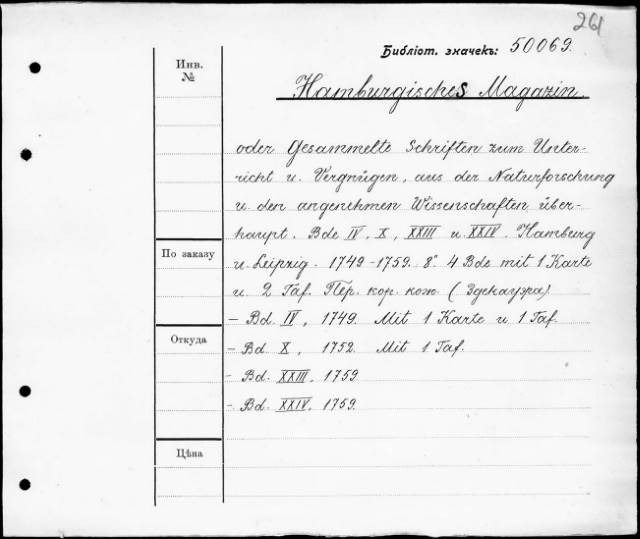 261
Библіот. значекъ: 50069.
Инв.
№
Hamburgisches Magazin.
oder Gesammelte Schriften zum Unter-
richt u. Vergnügen, aus der Naturforschung
u. den angenehmen Wissenschaften über-
haupt. Bde IV, X, XXIII u. XXIV. Hamburg
По заказу
u. Leipzig. 1749-1759. 8°. 4 Bde mit 1 Karte
u. 2 Taf. Пер. кор. кож. (Здекауэра)
– Bd. IV, 1749. Mit 1 Karte u 1 Taf.
Откуда
– Bd. X, 1752. Mit 1 Taf.
– Bd. XXIII, 1759
– Bd. XXIV, 1759.
Цѣна